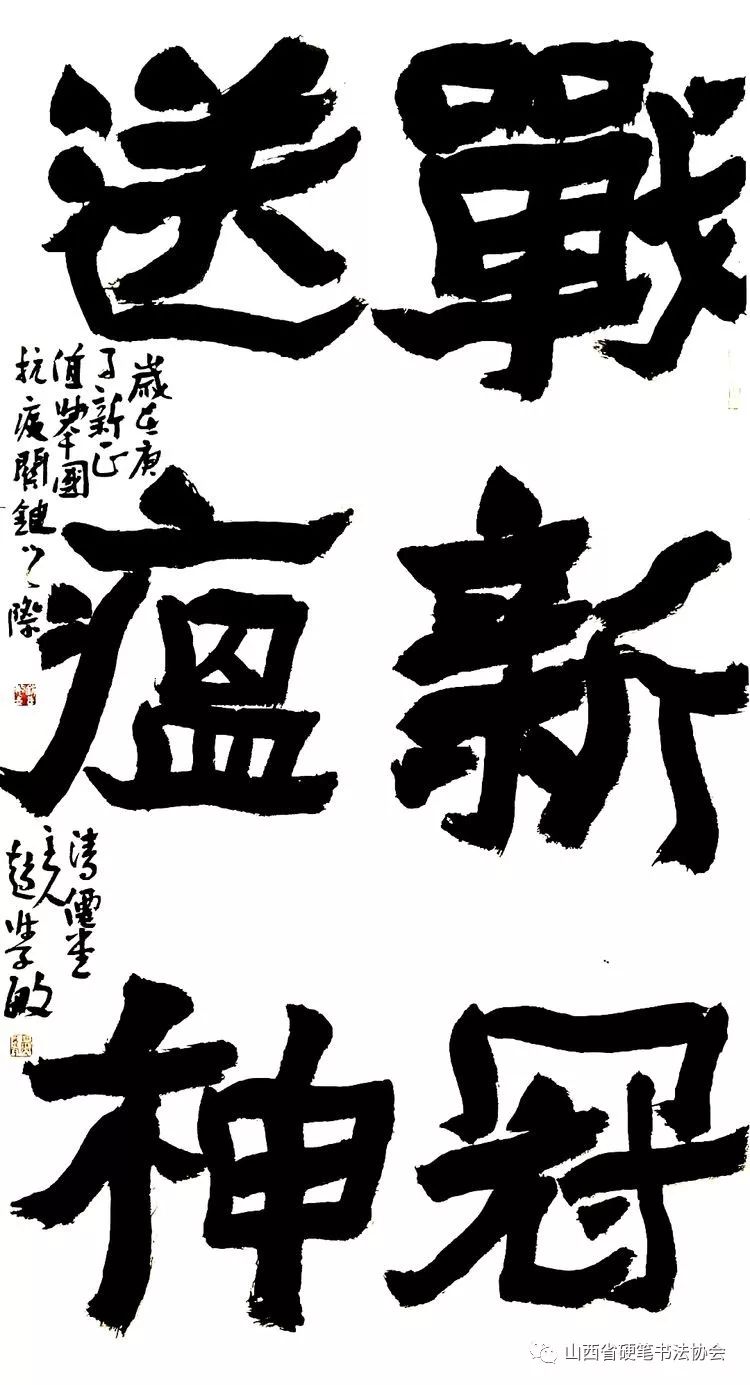 戰新冠
送瘟神
歲在庚
子新正
值舉國
抗疫關鍵之際
清儷堂
主人
趙學敏
山西省硬笔书法协会